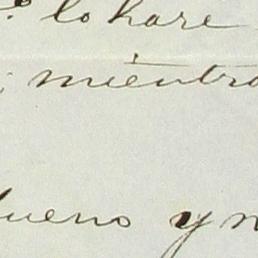 lo hare
mientra
bueno y n